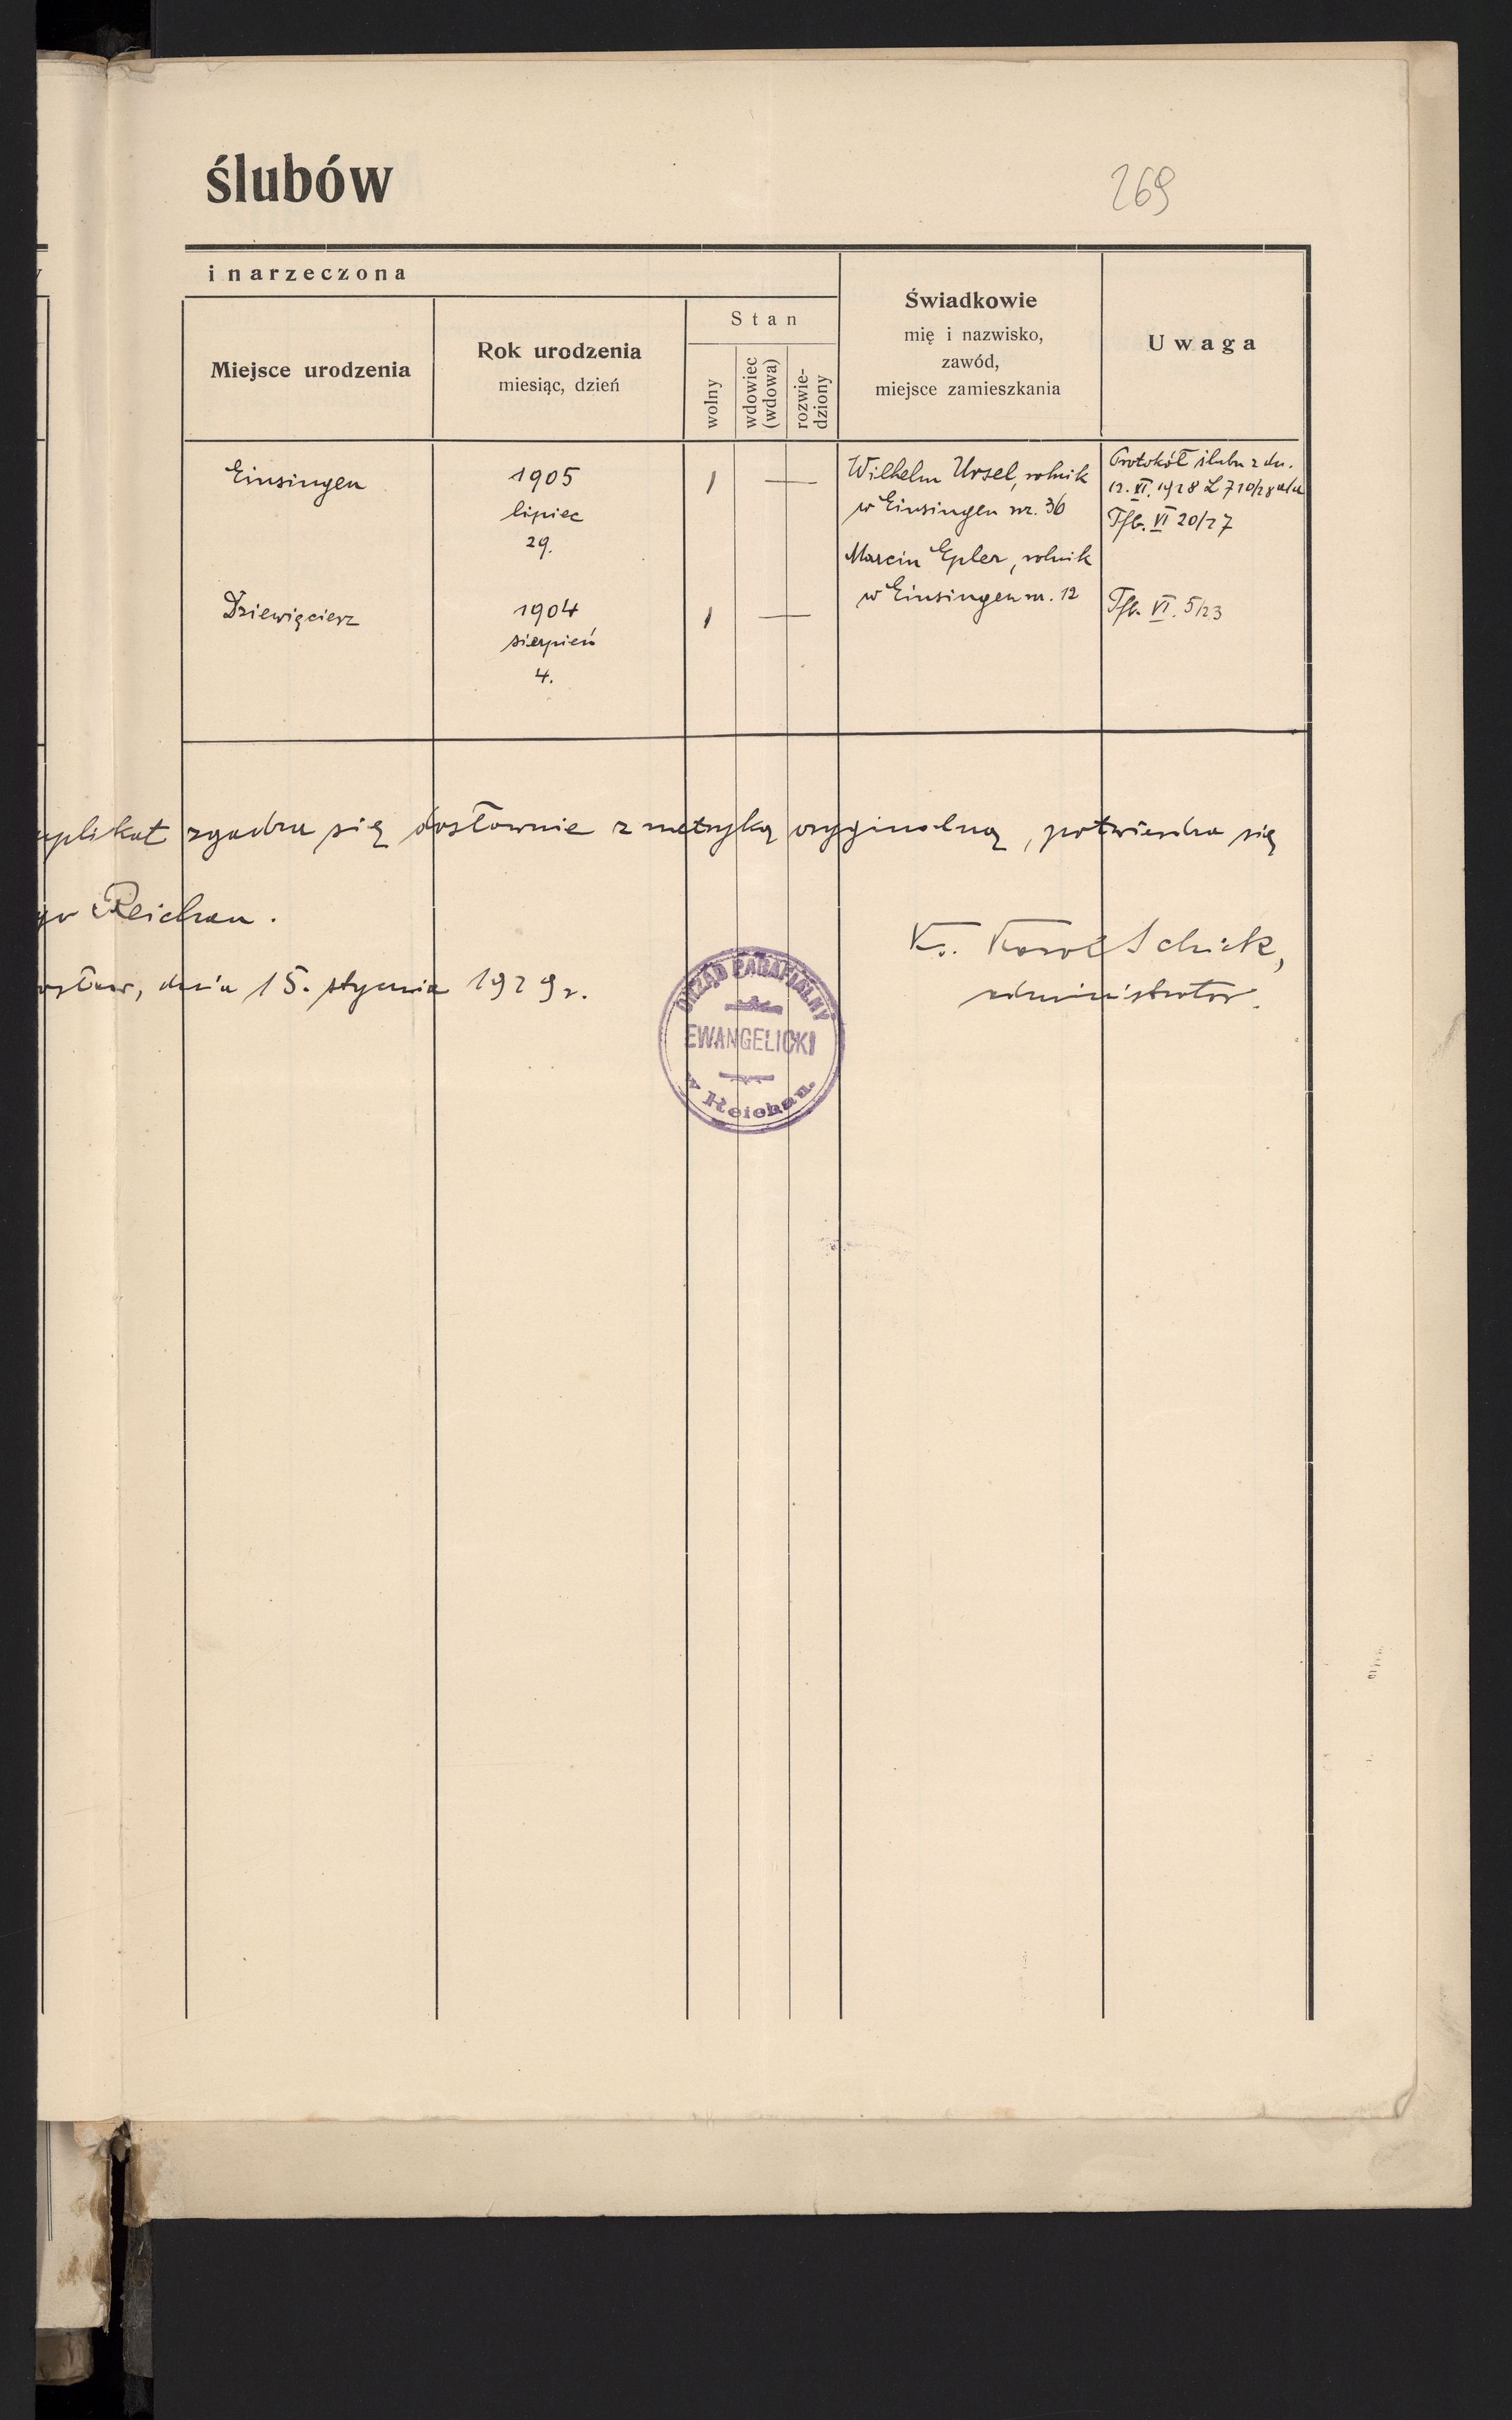 ślubów
269
i narzeczona
Miejsce urodzenia
Rok urodzenia
miesiąc, dzień
Stan
wolny
wdowiec
(wdowa)
rozwie-
dziony
Świadkowie
mię i nazwisko,
zawód,
miejsce zamieszkania
Uwaga
Einsingen
1905
lipiec
29.
1
Wilhelm Ursel, rolnik
w Einsingen nr. 36
Marcin Epler, rolnik
w Einsingen nr. 12
Protokół ślubu z dn.
12. XI. 1928 L 710/28
Tfb. VI 20/27
Dziewięcierz
1904
sierpień
4.
1
Tfb. VI. 5/23
uplikat zgadza się dosłownie z metryką oryginalną, potwierdza się
Reichau.
dnia 15. stycznia 1929 r.
Ks. Karol Schick,
administrator.
URZĄD PARAFIALNY
EWANGELICKI
w Reichau.